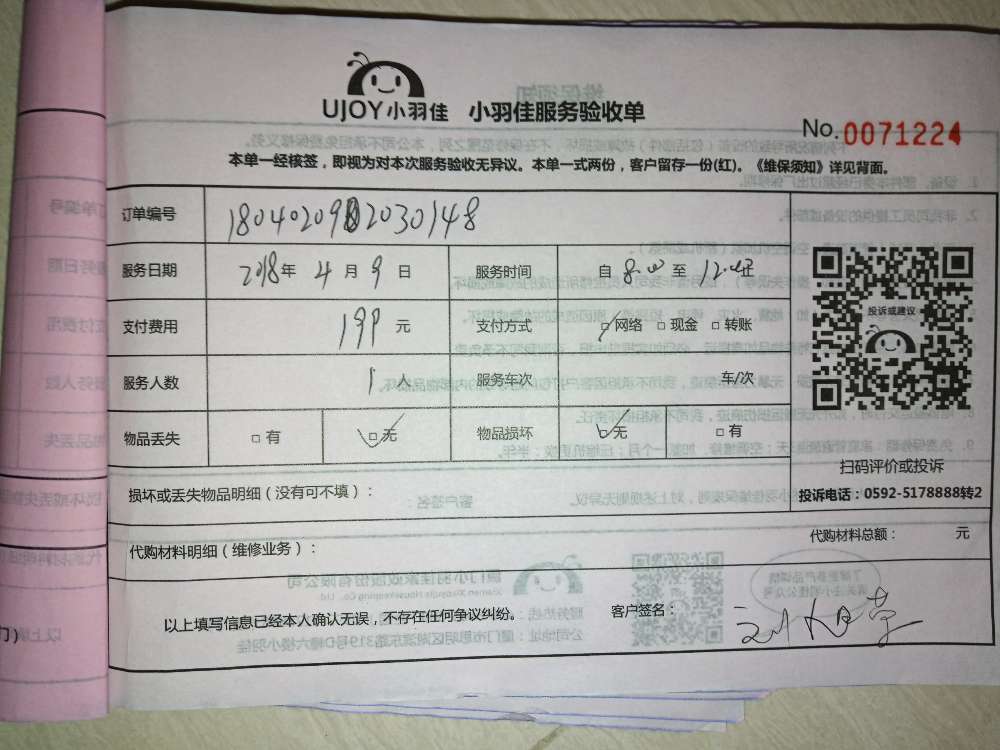 UJOY小羽佳 小羽佳服务验收单
No.0071224
本单一经核签，即视为对本次服务验收无异议。本单一式两份，客户留存一份(红)。《维保须知》详见背面。
订单编号
服务日期 2018年 4月 9日 服务时间 自 8:00 至
支付费用 199 元 支付方式 □网络 □现金 □转账
服务人数 1 人 服务车次 车/次
物品丢失 □有 □无 物品损坏 □无 □有
投诉或建议
扫码评价或投诉
投诉电话：0592-5178888转2
损坏或丢失物品明细（没有可不填）：
代购材料明细（维修业务）： 代购材料总额： 元
以上填写信息已经本人确认无误，不存在任何争议纠纷。 客户签名：